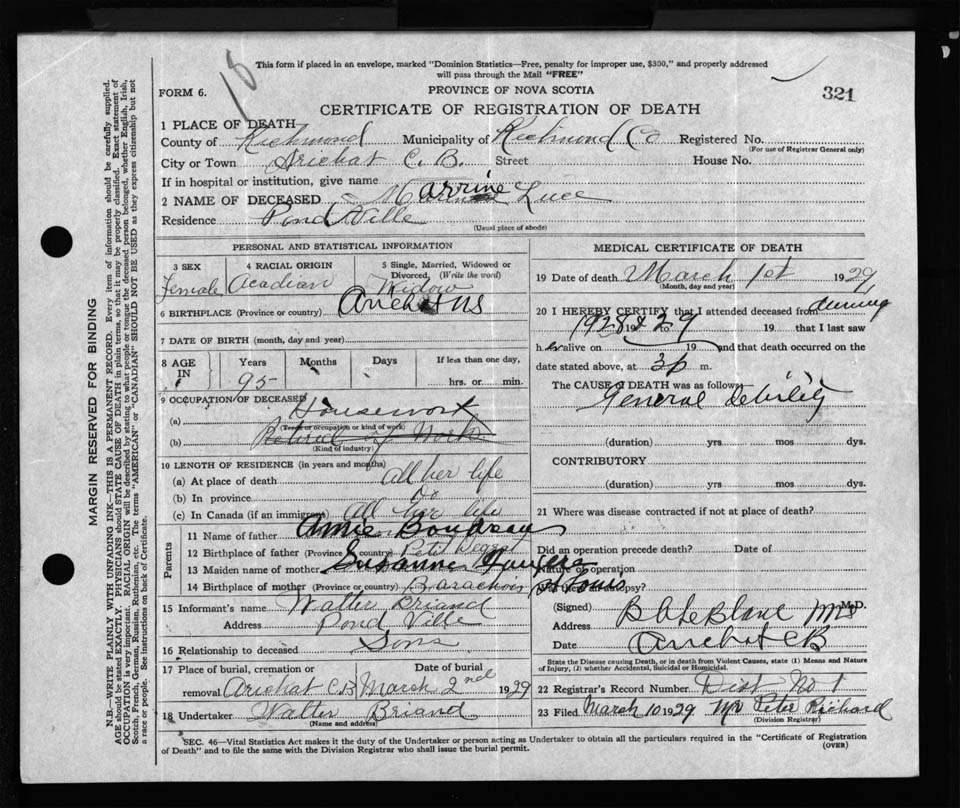 18
This form if placed in an envelope, marked "Dominion Statistics—Free, penalty for improper use, $300," and properly addressed
will pass through the Mail "FREE"
FORM 6.
PROVINCE OF NOVA SCOTIA
321
CERTIFICATE OF REGISTRATION OF DEATH
1 PLACE OF DEATH
County of Richmond Municipality of Richmond Co Registered No.
(For use of Registrar General only)
City or Town Arichat C. B. Street House No.
If in hospital or institution, give name
2 NAME OF DECEASED Marrine Luce
Residence Pond Ville
(Usual place of abode)
PERSONAL AND STATISTICAL INFORMATION
3 SEX Female
4 RACIAL ORIGIN Acadian
5 Single, Married, Widowed or Divorced, (Write the word)
Widow
6 BIRTHPLACE (Province or country) Arichat NS
7 DATE OF BIRTH (month, day and year)
8 AGE IN Years Months Days If less than one day,
95 hrs. or min.
9 OCCUPATION OF DECEASED
(a) Housework
(Trade or occupation or kind of work)
(b)
(Kind of industry)
10 LENGTH OF RESIDENCE (in years and months)
(a) At place of death all her life
(b) In province Do
(c) In Canada (if an immigrant) All her life
Parents
11 Name of father Amie Boudreau
12 Birthplace of father (Province or country) Petit Degrat
13 Maiden name of mother Susanne
14 Birthplace of mother (Province or country) Barachois St Louis
15 Informant's name Walter Briand
Address Pond Ville
16 Relationship to deceased Sons
17 Place of burial, cremation or removal Arichat C B
Date of burial March 2nd 1929
18 Undertaker Walter Briand
(Name and address)
MEDICAL CERTIFICATE OF DEATH
19 Date of death March 1st 1929
(Month, day and year)
20 I HEREBY CERTIFY that I attended deceased from during
1928 19 & to 29 19 that I last saw
her alive on 19 and that death occurred on
date stated above, at 3 p m.
The CAUSE OF DEATH was as follows:
General debility
(duration) yrs. mos. dys.
CONTRIBUTORY
(duration) yrs. mos. dys.
21 Where was disease contracted if not at place of death?
Did an operation precede death? Date of
Nature of operation
Was there an autopsy?
(Signed) B A LeBlanc MD M.D.
Address
Date Arichat CB
State the Disease causing Death, or in death from Violent Causes, state (1) Means and Nature
of Injury, (2) whether Accidental, Suicidal or Homicidal.
22 Registrar's Record Number Dist No 1
23 Filed March 10 1929 Peter Richard
(Division Registrar)
SEC. 46—Vital Statistics Act makes it the duty of the Undertaker or person acting as Undertaker to obtain all the particulars required in the "Certificate of Registration
of Death" and to file the same with the Division Registrar who shall issue the burial permit.
(OVER)
MARGIN RESERVED FOR BINDING
N.B.—WRITE PLAINLY WITH UNFADING INK—THIS IS A PERMANENT RECORD. Every item of information should be carefully supplied.
AGE should be stated EXACTLY. PHYSICIANS should STATE CAUSE OF DEATH in plain terms, so that it may be properly classified. Exact statement of
OCCUPATION is very important. RACIAL ORIGIN will be described by stating to what people or tongue the deceased person belonged, whether English, Irish,
Scotch, French, German, Russian, Ruthenian, etc. The terms "AMERICAN" or "CANADIAN" SHOULD NOT BE USED as they express citizenship but not
a race or people. See instructions on back of Certificate.